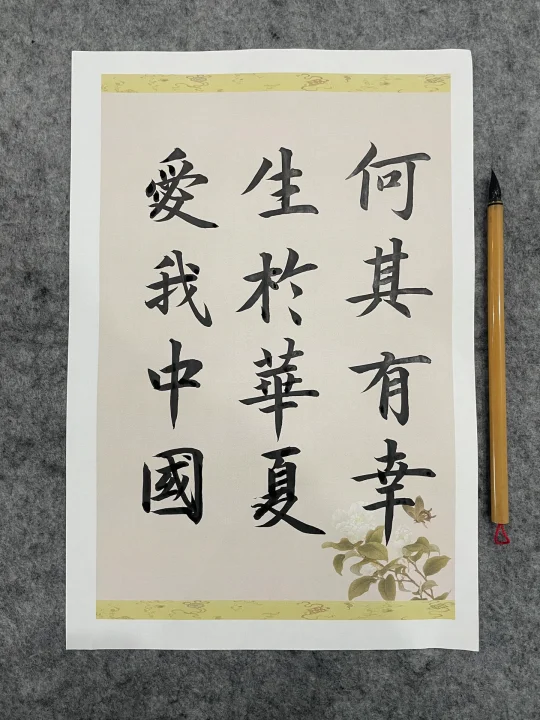 何其有幸
生於華夏
愛我中國